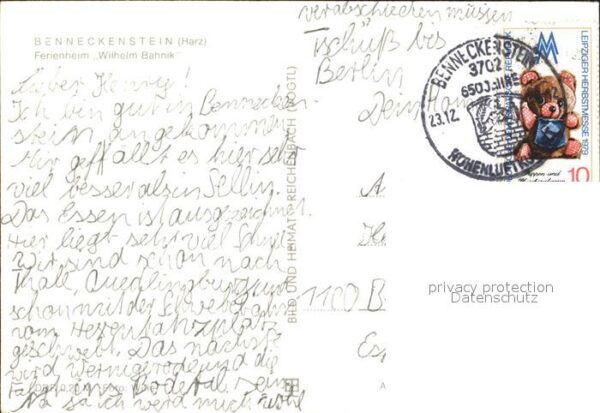 BENNECKENSTEIN (Harz)
Ferienheim „Wilhelm Bahnik"
Lieber Henry!
Ich bin gut in Bennecken-
stein angekommen
Mir gefällt es hier sehr
viel besser als in Sellin.
Das Essen ist ausgezeichnet.
Hier liegt sehr viel Schnee
Wir sind schon nach
Thale, Quedlinburg und
schon mit der Schwebebahn
vom Hexentanzplatz
geschwebt. Das nächste
wird Wernigerode und die
Fahrt ins Bodetal sein
Na so ich werd mich wohl
verabschieden müssen
Tschüß bis
Berlin
Dein
BILD UND HEIMAT REICHENBACH (VOGTL)
1100 B
A
BENNECKENSTEIN
3702
650 JAHRE
23.12.
HÖHENLUFTKU
MM
LEIPZIGER HERBSTMESSE 1979
10
privacy protection
Datenschutz